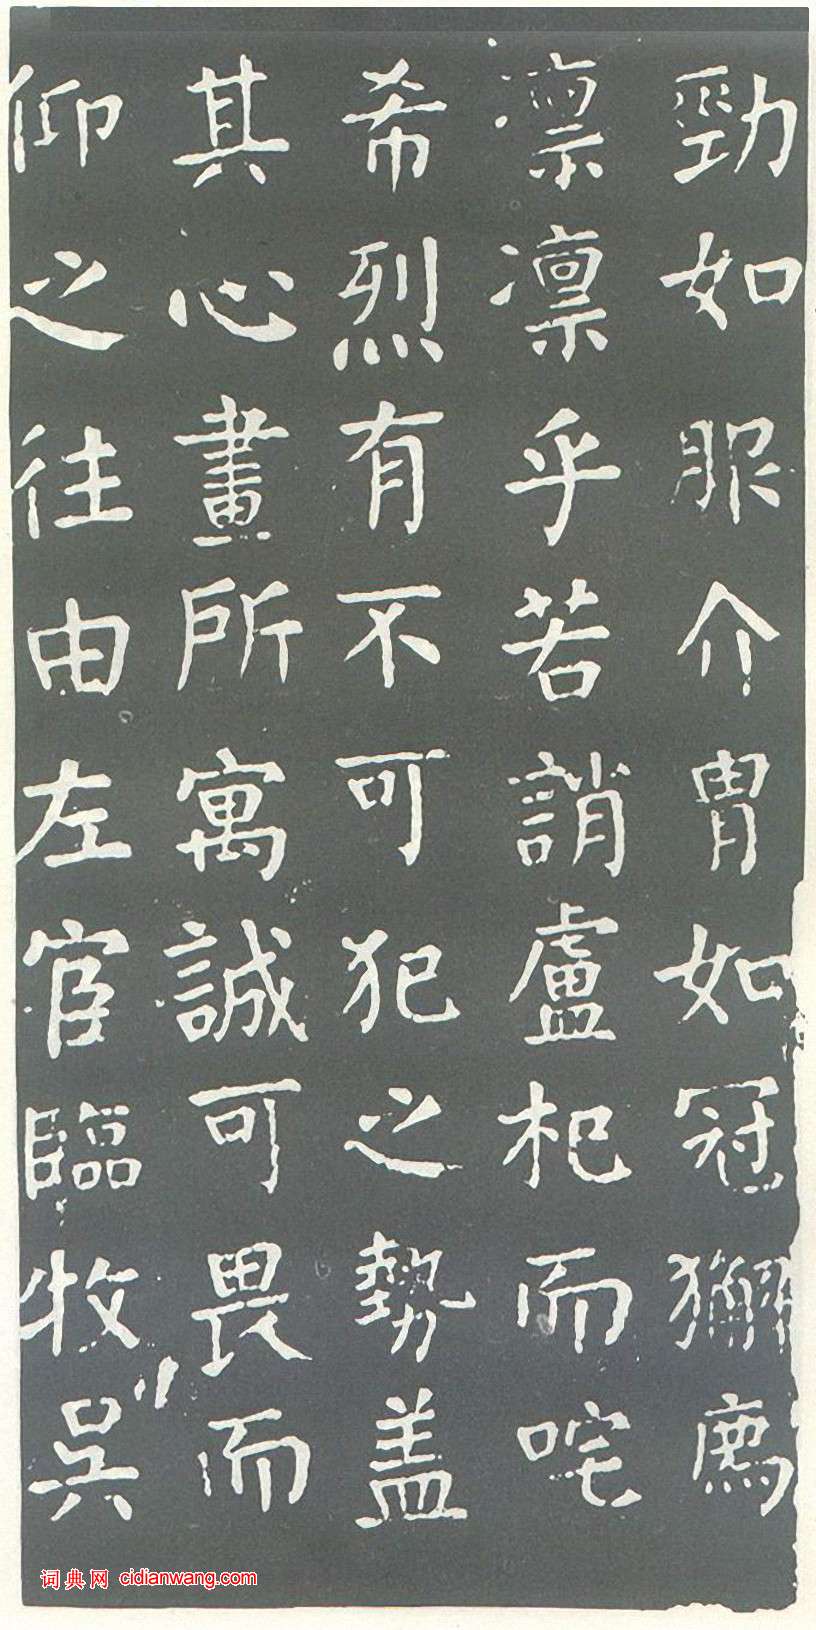 勁如服介冑如冠獬廌
凛凛乎若誚盧杞而咤
希烈有不可犯之勢盖
其心畫所寓誠可畏而
仰之往由左宦臨牧吳
词典网 cidianwang.com